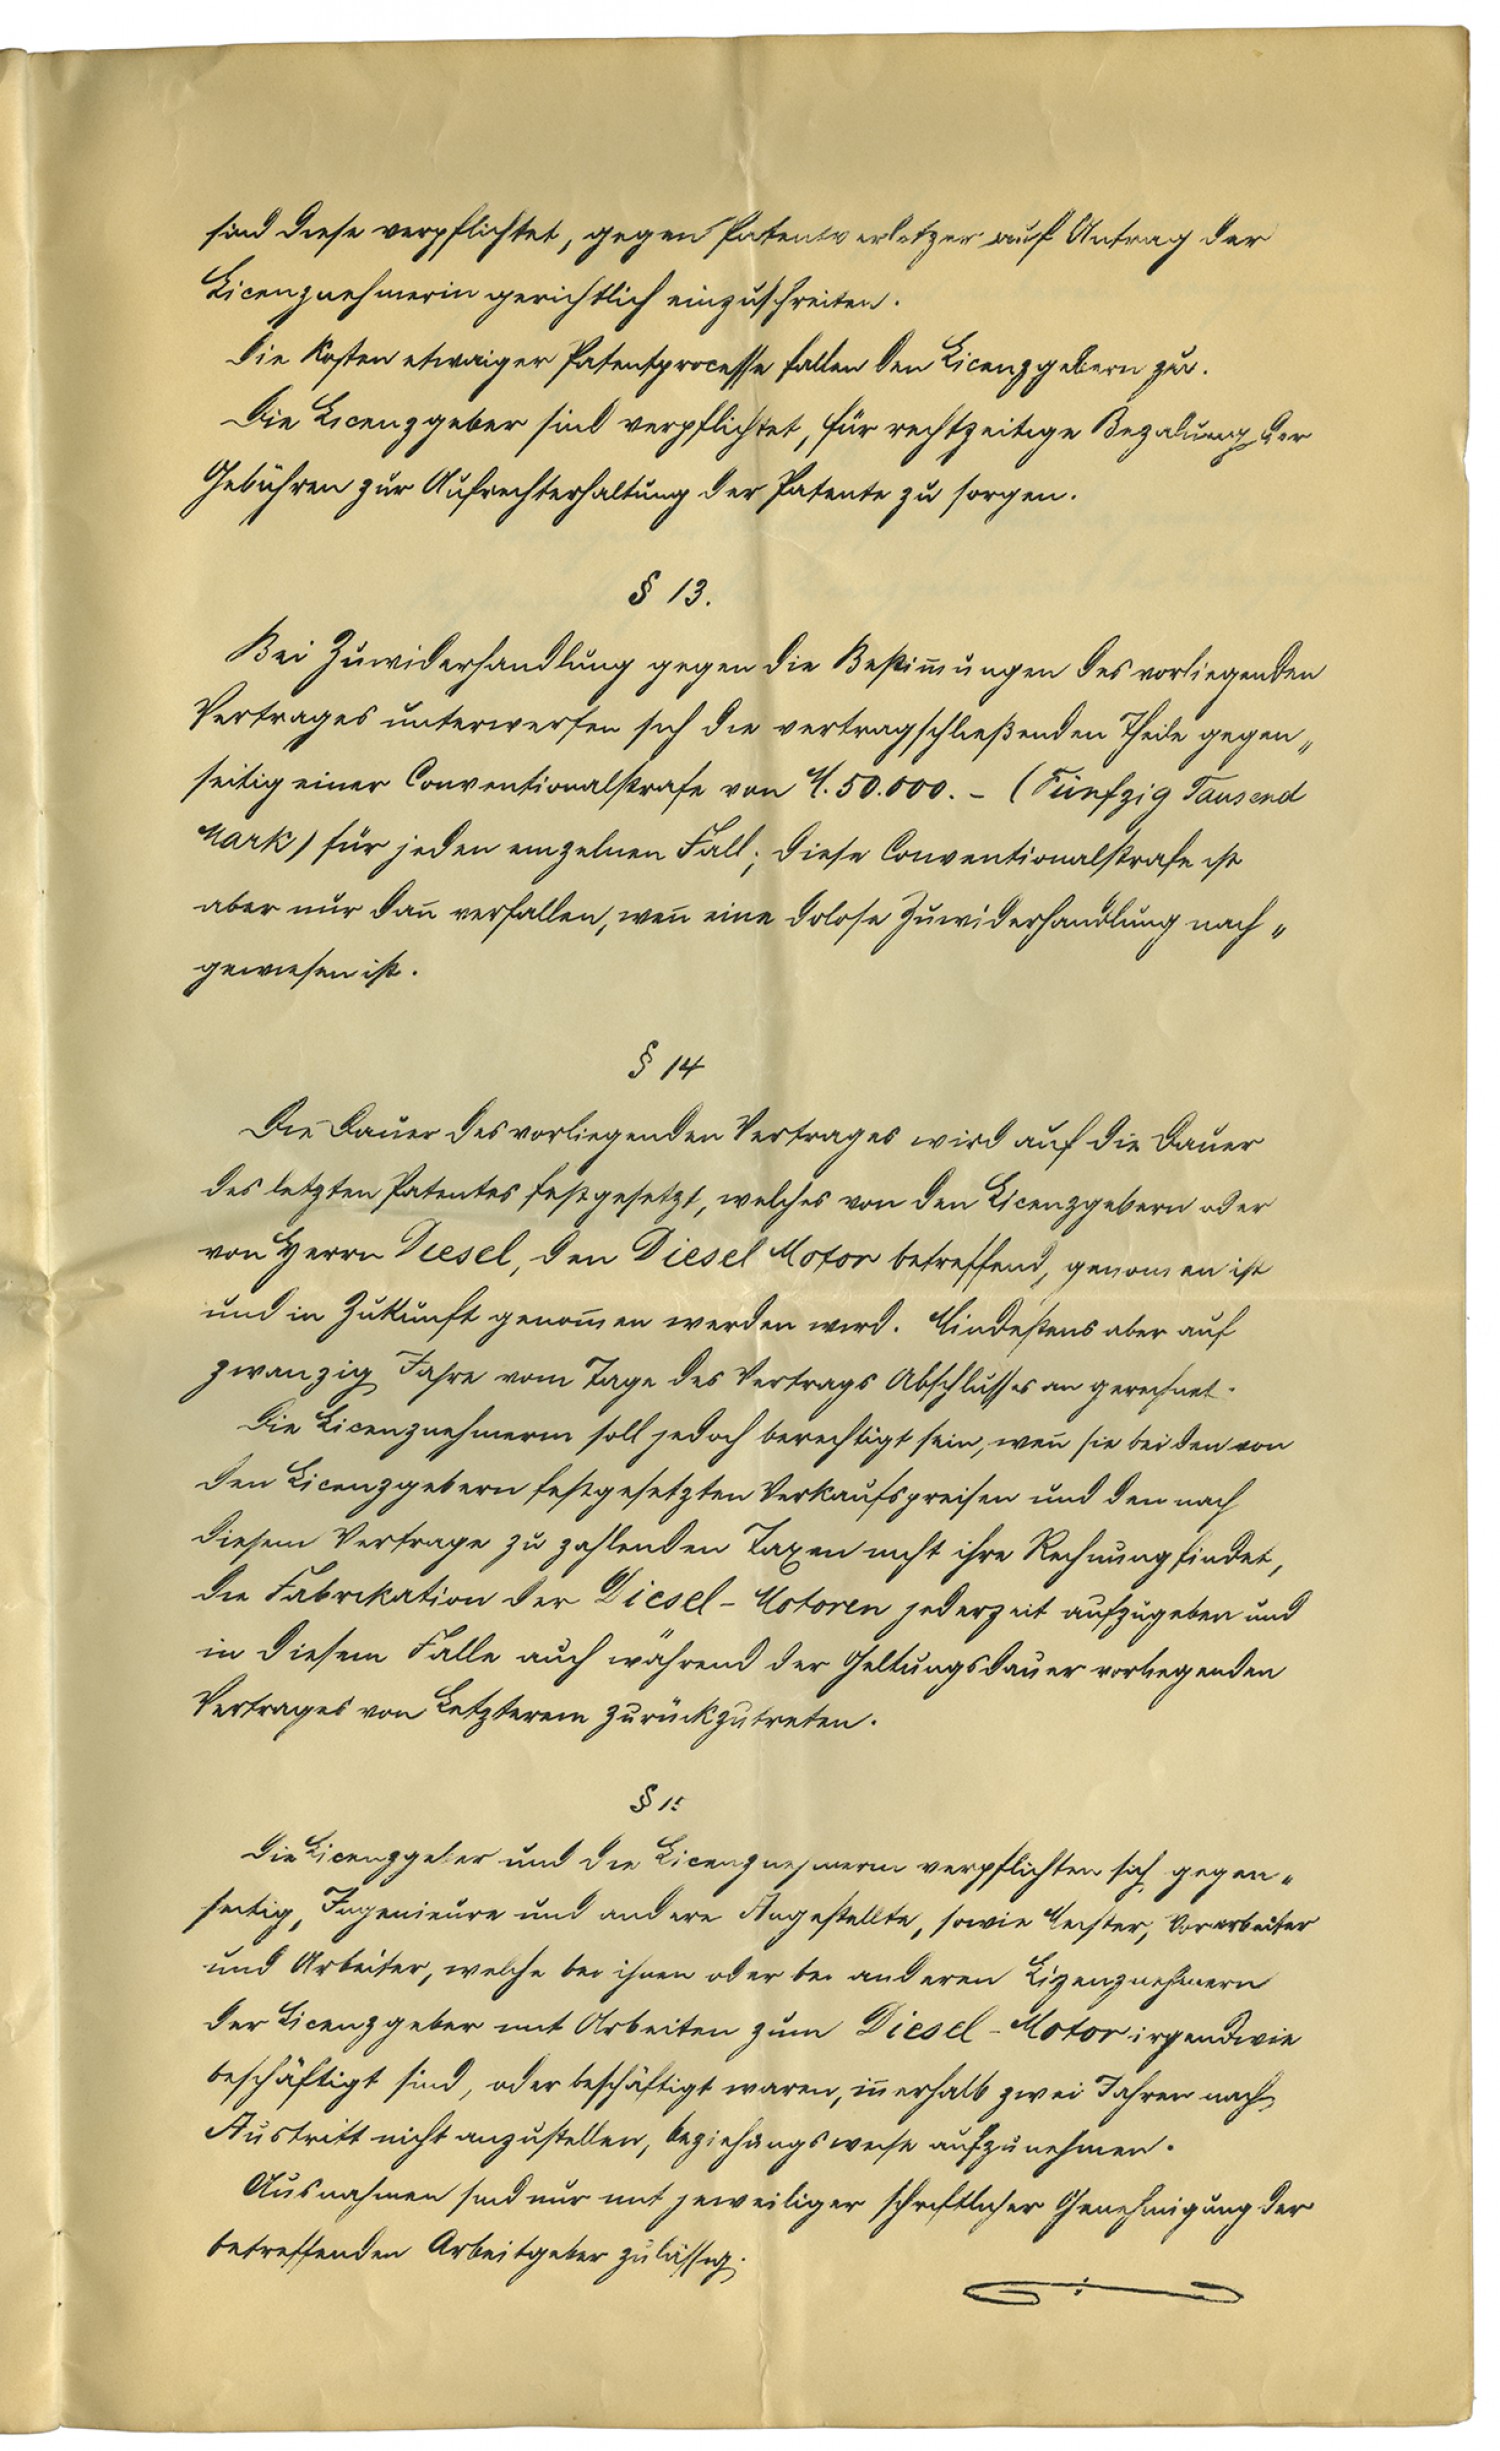 sind diese verpflichtet, gegen Patentverletzer auf Antrag der
Licenznehmerin gerichtlich einzuschreiten.
Die Kosten etwaiger Patentprocesse fallen den Licenzgebern zu.
Die Licenzgeber sind verpflichtet, für rechtzeitige Bezalung der
Gebühren zur Aufrechterhaltung der Patente zu sorgen.
§ 13.
Bei Zuwiderhandlung gegen die Bestim̄ungen des vorliegenden
Vertrages unterwerfen sich die vertragschließenden Theile gegen„
seitig einer Conventionalstrafe von M. 50.000. – (Fünfzig Tausend
Mark) für jeden einzelnen Fall; diese Conventionalstrafe ist
aber nur dan̄ verfallen, wen̄ eine dolose Zuwiderhandlung nach„
gewiesen ist.
§ 14
Die Dauer des vorliegenden Vertrages wird auf die Dauer
des letzten Patentes festgesetzt, welches von den Licenzgebern oder
von Herrn Diesel, den Diesel Motor betreffend, genomen ist
und in Zukunft genom̄en werden wird. Mindestens aber auf
zwanzig Jahre vom Tage des Vertrags Abschlusses an gerechnet.
Die Licenznehmerin soll jedoch berechtigt sein, wen̄ sie bei den von
den Licenzgebern festgesetzten Verkaufspreisen und den nach
diesem Vertrage zu zahlenden Taxen nicht ihre Rechnung findet,
die Fabrikation der Diesel-Motoren jederzeit aufzugeben und
in diesem Falle auch während der Geltungsdauer vorliegenden
Vertrages von Letzterem zurückzutreten.
§ 15
Die Licenzgeber und die Licenznehmerin verpflichten sich gegen„
seitig, Ingenieure und andere Angestellte, sowie Meister, Vorarbeiter
und Arbeiter, welche bei ihnen oder bei anderen Lizenznehmern
der Licenzgeber mit Arbeiten zum Diesel-Motor irgendwie
beschäftigt sind, oder beschäftigt waren, in̄erhalb zwei Jahren nach
Austritt nicht anzustellen, beziehungsweise aufzunehmen.
Ausnahmen sind nur mit jeweiliger schriftlicher Genehmigung der
betreffenden Arbeitgeber zulässig.